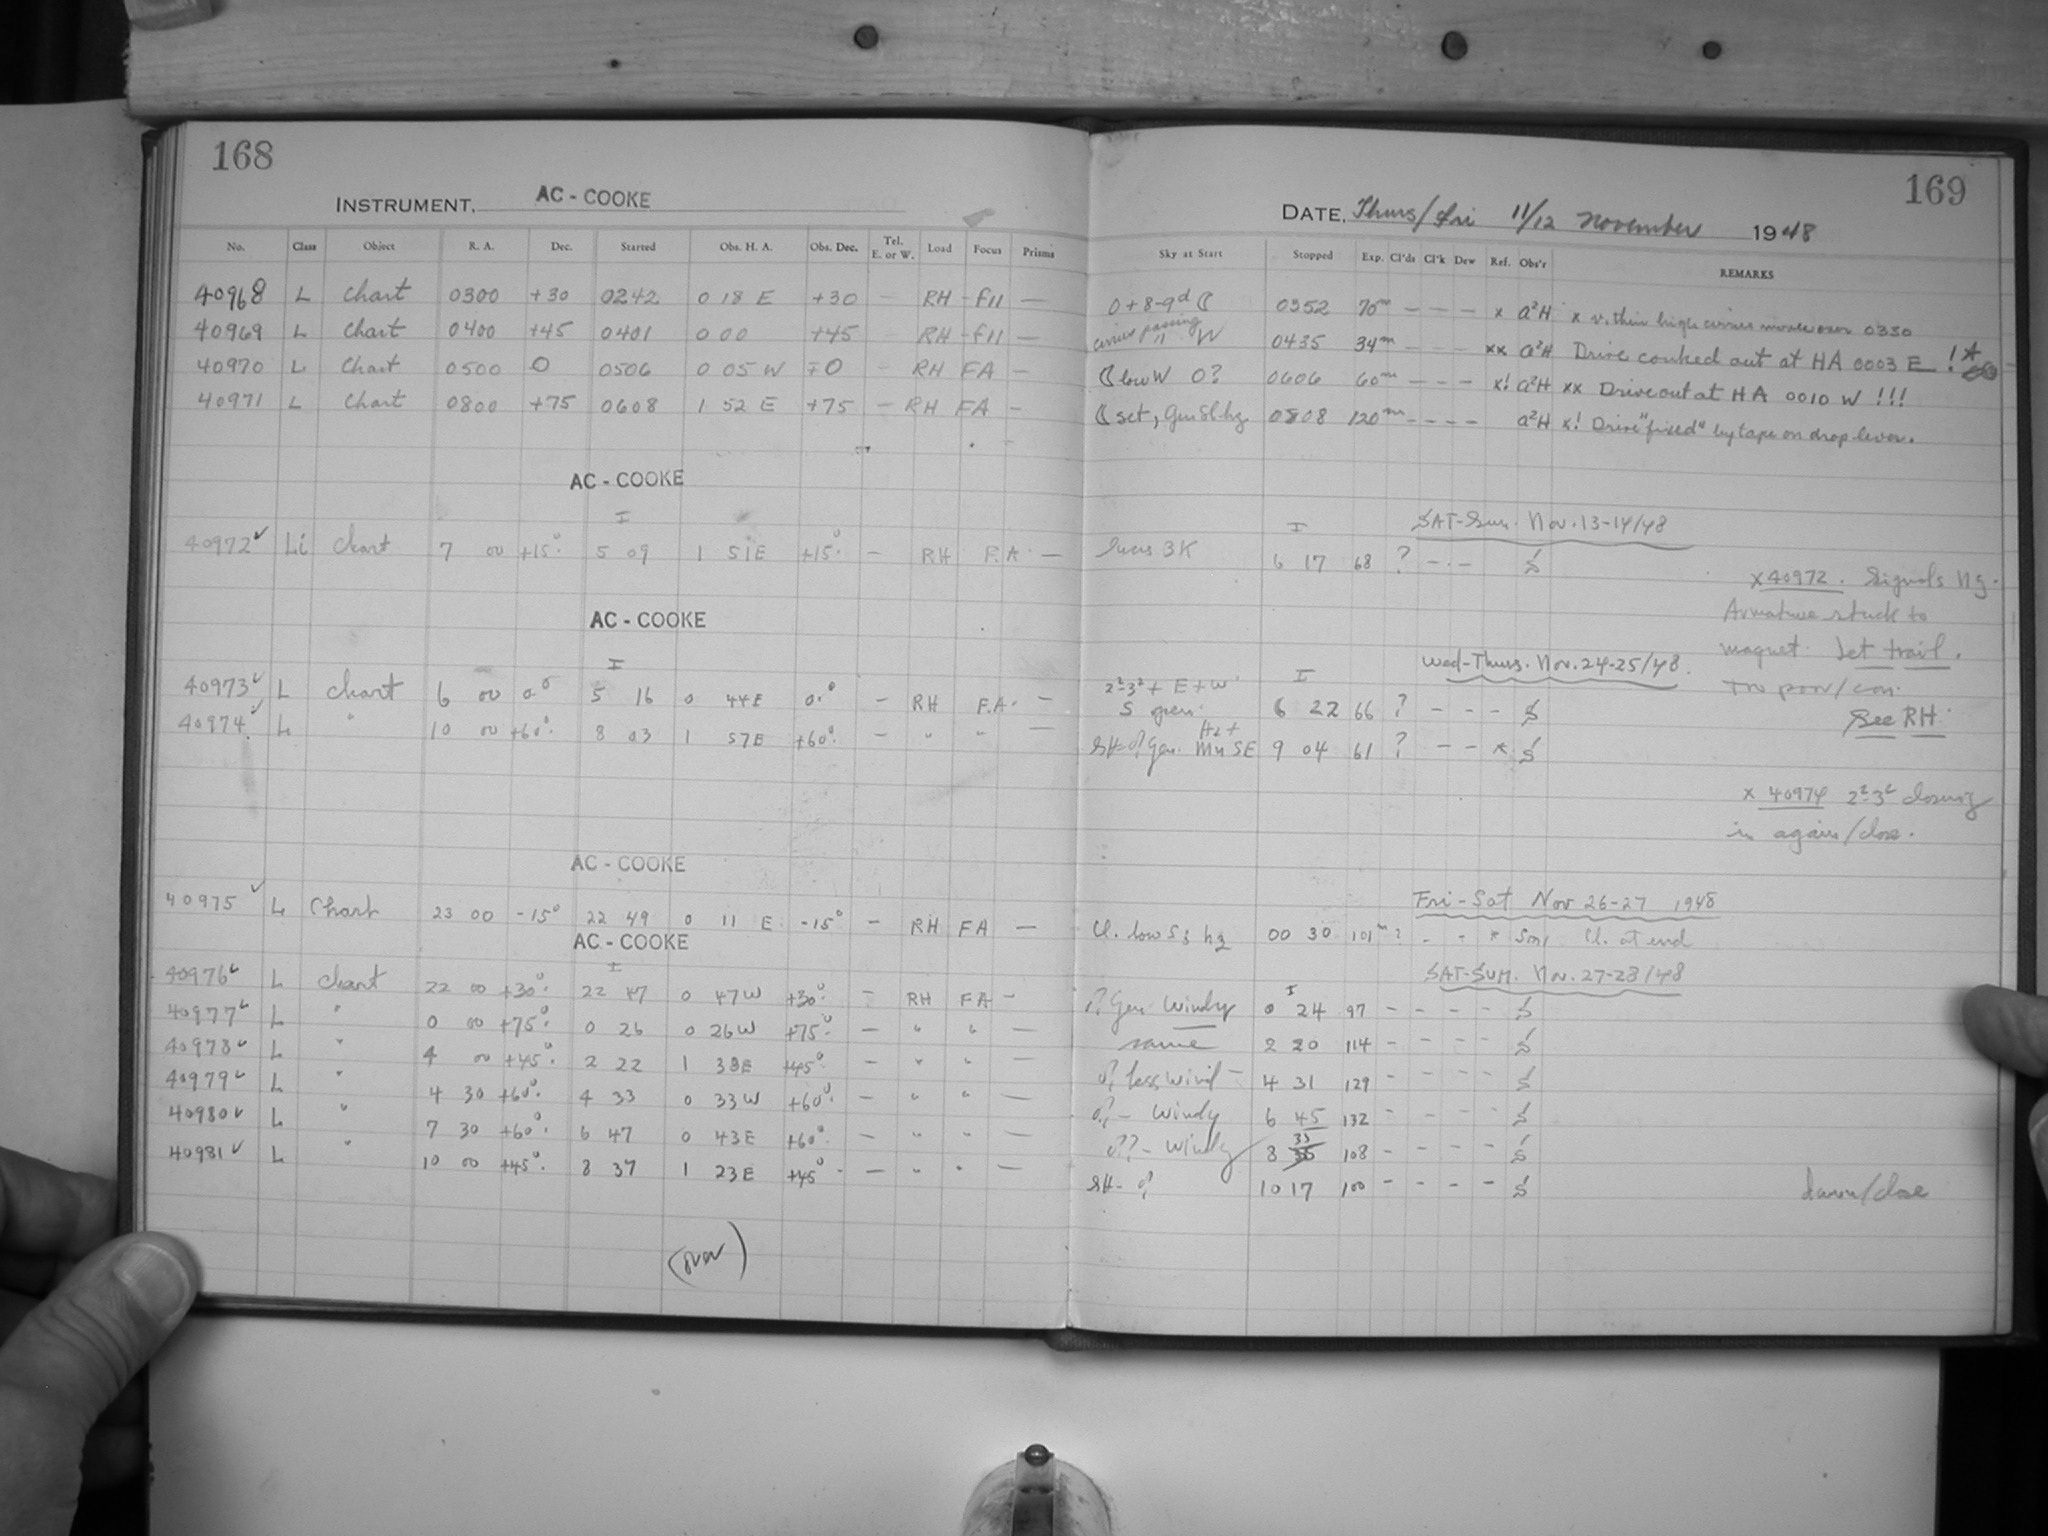 168
INSTRUMENT, AC - COOKE
No. Class Object R. A. Dec. Started Obs. H. A. Obs. Dec. Tel. E. or W. Load Focus Prisms
40968 L Chart 0300 +30 0242 0 18 E +30 - RH - f11 —
40969 L Chart 0400 +45 0401 0 00 +45 RH - f11 —
40970 L Chart 0500 0 0506 0 05 W 0 - RH FA -
40971 L Chart 0800 +75 0608 1 52 E +75 - RH FA -
AC - COOKE
40972 ✓ Li Chart 7 00 +15° 5 09 1 51E +15° - RH F.A. —
AC - COOKE
40973 ✓ L Chart 6 00 0° 5 16 0 44E 0° - RH F.A. -
40974 ✓ L " 10 00 +60° 8 03 1 57E +60° - " " —
AC - COOKE
40975 ✓ L Chart 23 00 -15° 22 49 0 11 E -15° - RH FA —
AC - COOKE
40976 ✓ L Chart 22 00 +30° 22 47 0 47W +30° - RH FA -
40977 ✓ L " 0 00 +75° 0 26 0 26W +75° — " " —
40978 ✓ L " 4 00 +45° 2 22 1 38E +45° - " " —
40979 ✓ L " 4 30 +60° 4 33 0 33W +60° — " " —
40980 ✓ L " 7 30 +60° 6 47 0 43E +60° — " " —
40981 ✓ L " 10 00 +45° 8 37 1 23E +45° — " " —
(over)
169
DATE, Thurs/Fri 11/12 November 1948
Sky at Start Stopped Exp. Cl'ds Cl'k Dew Ref. Obs'r REMARKS
0+8-9d ☾ 0352 70m - - - x a²H x v. thin high cirrus moves over 0330
cirrus passing " W 0435 34m - - - xx a²H Drive conked out at HA 0003 E !
☾ low W 0? 0606 60m - - - x! a²H xx Drive out at HA 0010 W !!!
☾ set, Gen Sl. hz 0808 120m - - - - a²H x! Drive "fixed" by tape on drop lever.
SAT-Sun. Nov. 13-14/48
3K 6 17 68 ? - - - S
x 40972. Signals NG.
Armature stuck to
magnet. Let trail.
Too poor/con.
See RH.
Wed-Thurs. Nov. 24-25/48.
2²-3² + E + W
S open. 6 22 66 ? - - - S
Hz +
SH- Gen. M4 SE 9 04 61 ? - - * S
x 40974 2²-3² closing
in again/close.
Fri-Sat Nov 26-27 1948
Cl. low S; hz 00 30 101m ? - - * Cl. at end
SAT-SUN. Nov. 27-28/48
Gen. Windy 0 24 97 - - - - S
same 2 20 114 - - - - S
less wind - 4 31 129 - - - - S
- Windy 6 45 132 - - - - S
- Windy 8 35 108 - - - - S
SH- 10 17 100 - - - - S
dawn/close